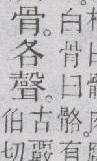 白骨曰骼。有
骨。各聲。
古覈
伯切